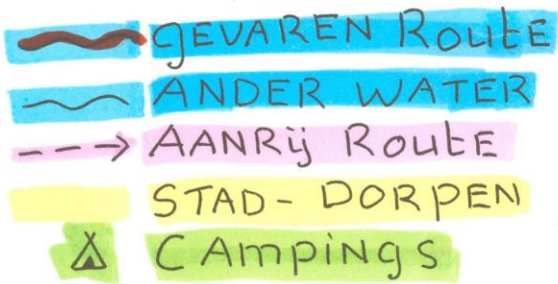 GEVAREN RoutE
ANDER WATER
AANRij RoutE
STAD - DORPEN
CAmpingS